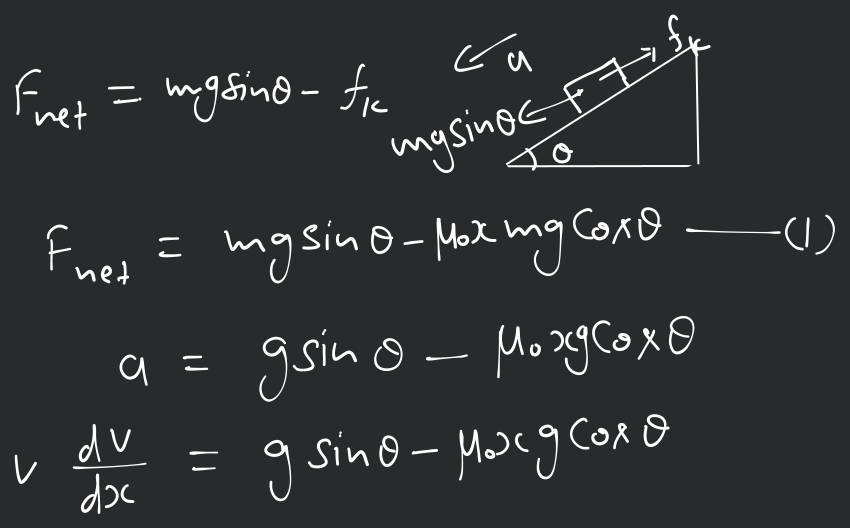 F_net = mg sinθ - f_k
a
f_k
mg sinθ
θ
F_net = mg sin θ - μ₀x mg Cosθ —— (1)
a = g sin θ - μ₀ x g Cosθ
v dv/dx = g sinθ - μ₀x g Cosθ